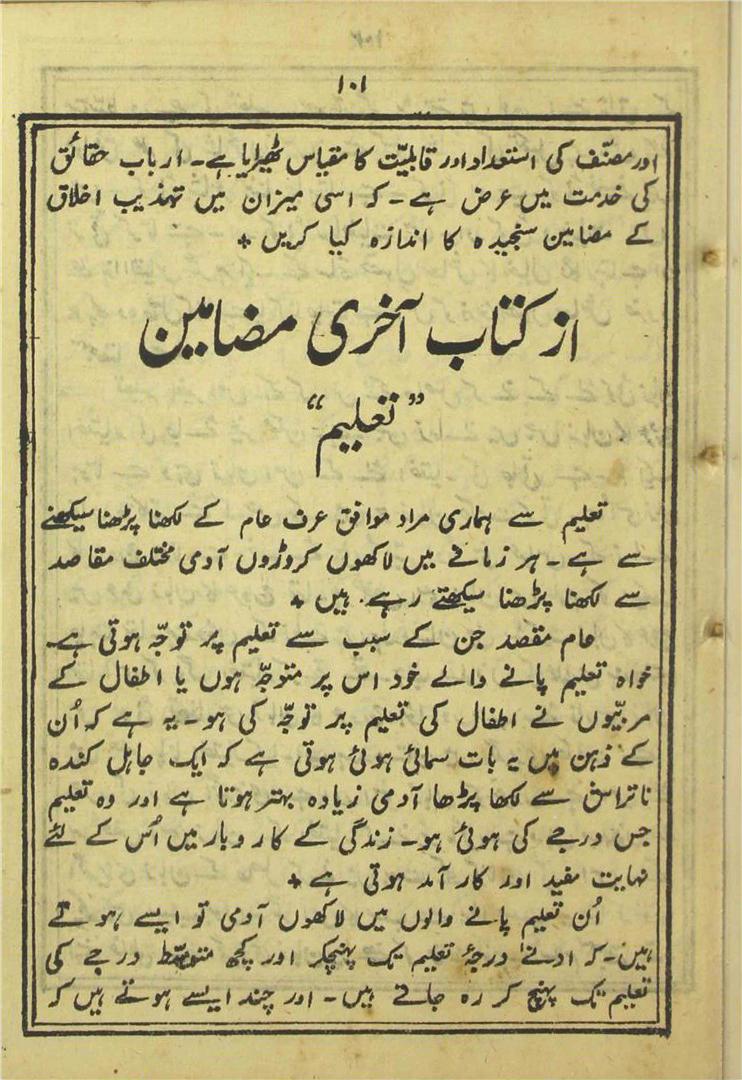 ۱۰۱
اور مصنّف کی استعداد اور قابلیّت کا مقیاس ٹھیرایا ہے۔ ارباب حقائق
کی خدمت میں عرض ہے۔ کہ اسی میزان میں تہذیب اخلاق
کے مضامین سنجیدہ کا اندازہ کیا کریں +
از کتاب آخری مضامین
”تعلیم“
تعلیم سے ہماری مراد موافق عرف عام کے لکھنا پڑھنا سیکھنے
سے ہے۔ ہر زمانے میں لاکھوں کروڑوں آدمی مختلف مقاصد
سے لکھنا پڑھنا سیکھتے رہے ہیں +
عام مقصد جن کے سبب سے تعلیم پر توجّہ ہوتی ہے۔
خواہ تعلیم پانے والے خود اس پر متوجّہ ہوں یا اطفال کے
مربیّوں نے اطفال کی تعلیم پر توجّہ کی ہو۔ یہ ہے کہ اُن
کے ذہن میں یہ بات سمائی ہوئی ہوتی ہے کہ ایک جاہل کندہ
ناتراش سے لکھا پڑھا آدمی زیادہ بہتر ہوتا ہے اور وہ تعلیم
جس درجے کی ہوئی ہو۔ زندگی کے کار و بار میں اُس کے لئے
نہایت مفید اور کار آمد ہوتی ہے +
اُن تعلیم پانے والوں میں لاکھوں آدمی تو ایسے ہوتے
ہیں۔ کہ ادنےٰ درجۂ تعلیم تک پہنچکر اور کچھ متوسّط درجے کی
تعلیم تک پہنچ کر رہ جاتے ہیں۔ اور چند ایسے ہوتے ہیں کہ